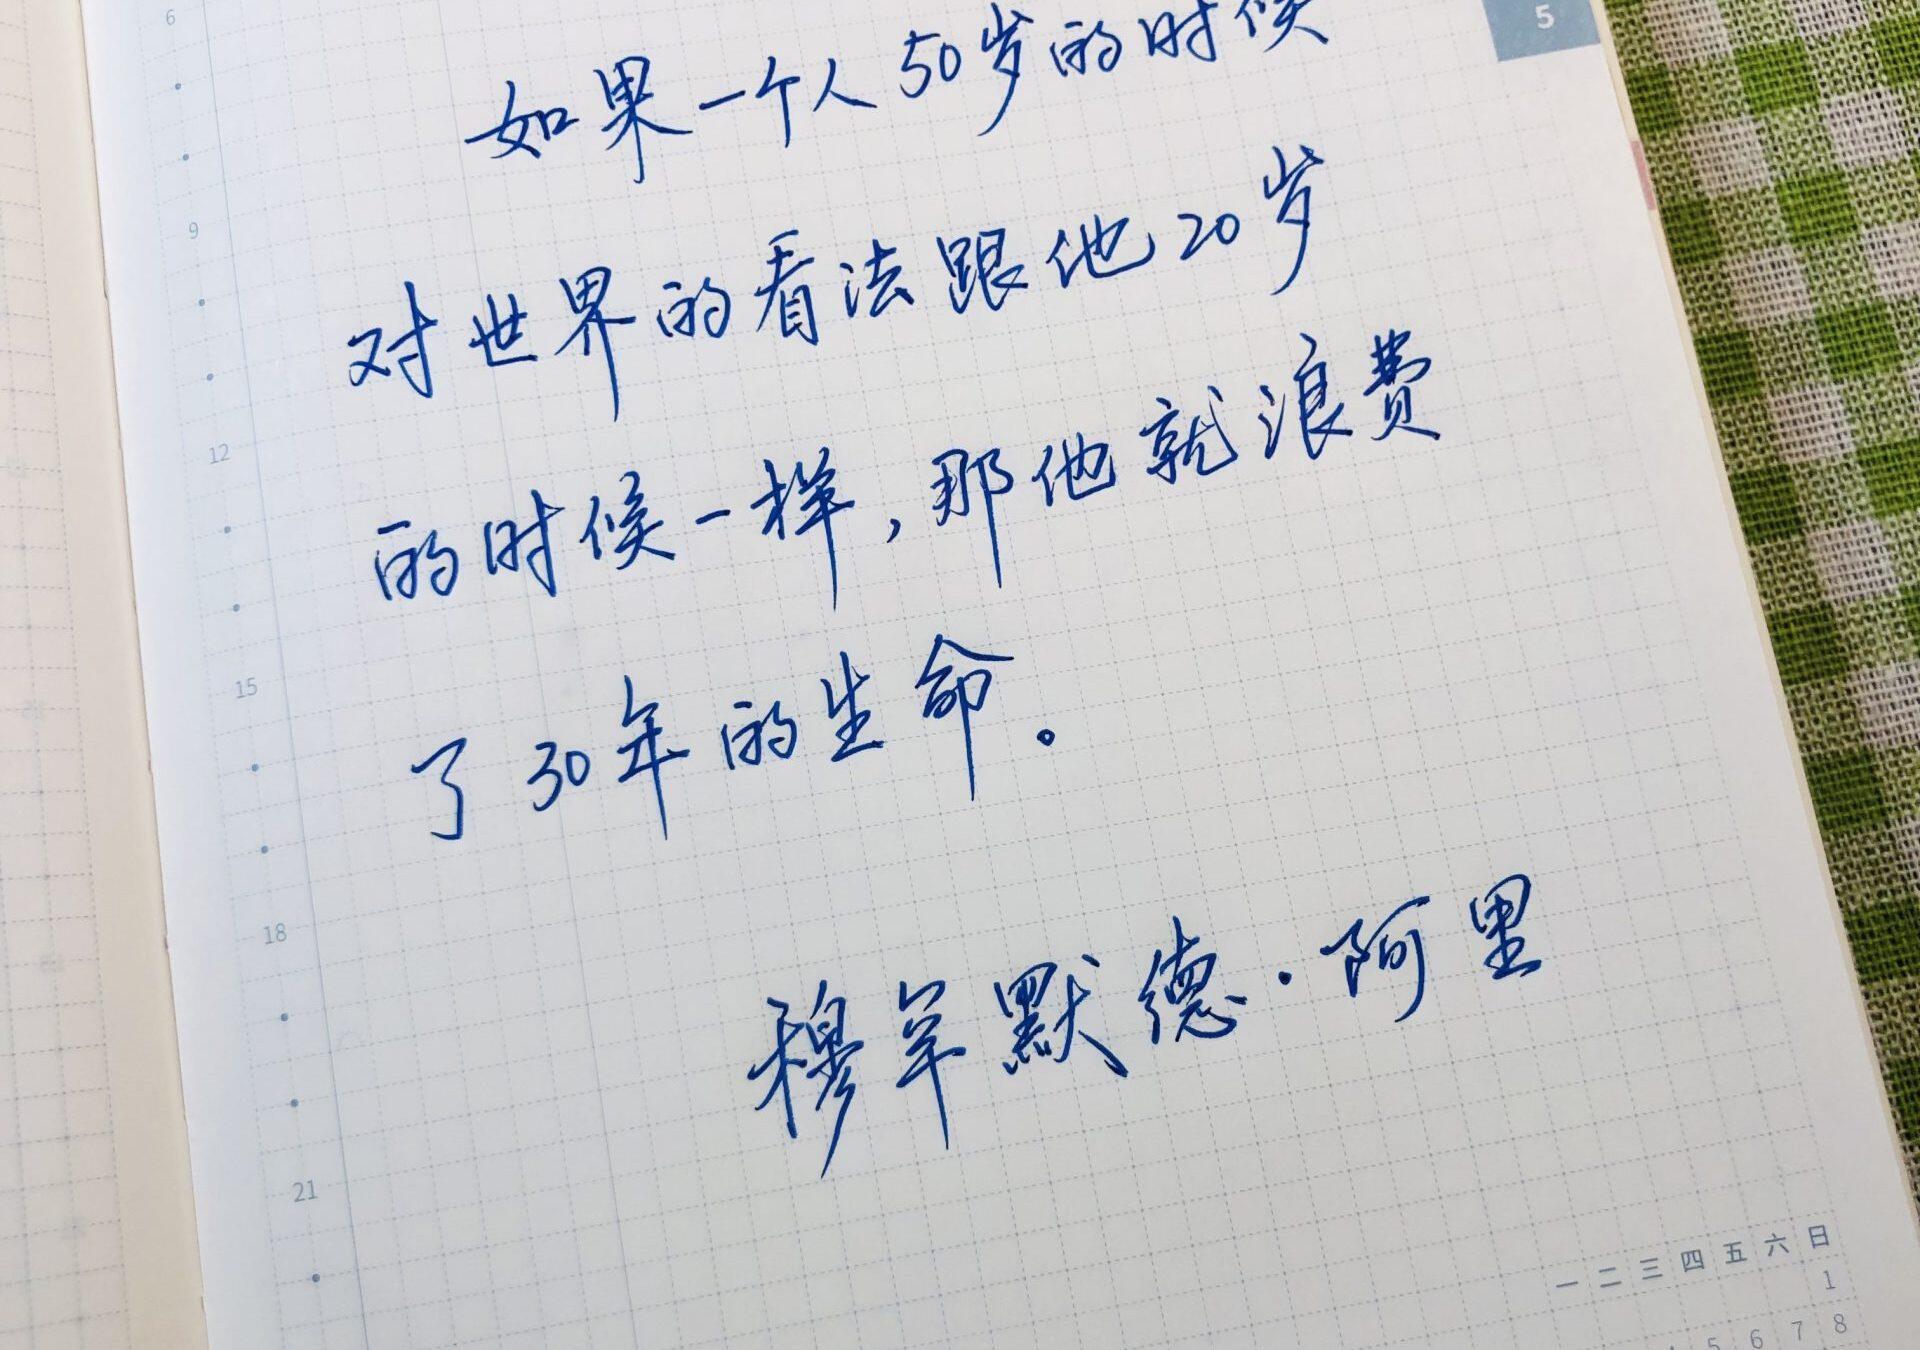 5
6
如果一个人50岁的时候
9
对世界的看法跟他20岁
12
的时候一样，那他就浪费
15
了30年的生命。
18
穆罕默德·阿里
21
一 二 三 四 五 六 日
1
5 6 7 8